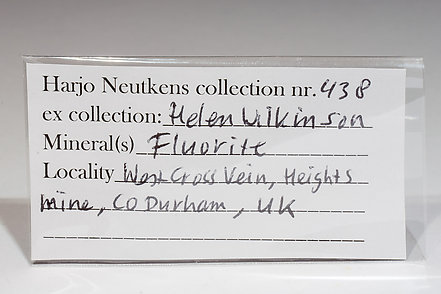 Harjo Neutkens collection nr. 438
ex collection: Helen Wilkinson
Mineral(s) Fluorite
Locality West Cross Vein, Heights
Mine, CO Durham, UK